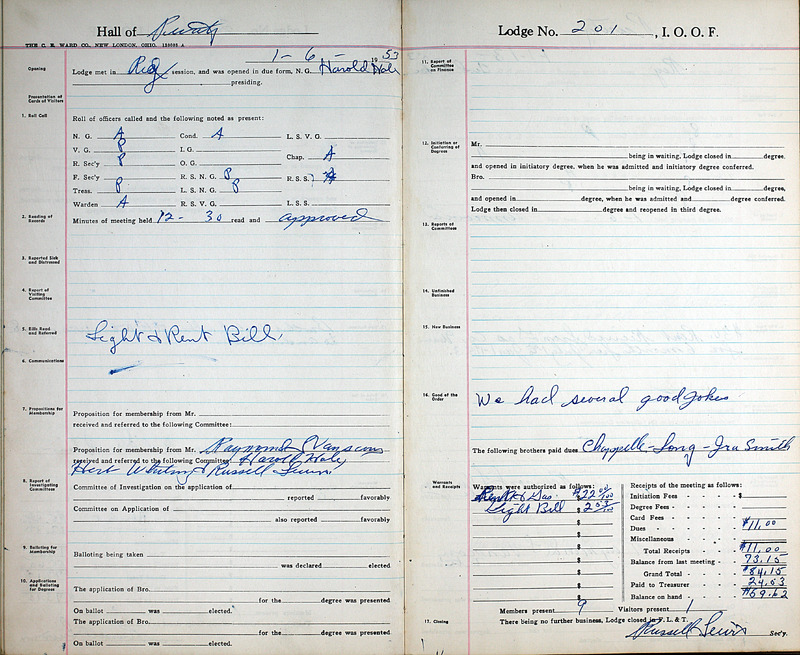 Hall of Purity
THE C. E. WARD CO., NEW LONDON, OHIO.
1-6- 1953
Opening
Lodge met in Reg session, and was opened in due form, N. G. Harold Haly
presiding.
Presentation of Cards of Visitors
1. Roll Call
Roll of officers called and the following noted as present:
N. G. A Cond. A L. S. V. G.
V. G. P I. G. Chap. A
R. Sec'y P O. G.
F. Sec'y R. S. N. G. P R. S. S.
Treas. P L. S. N. G. P
Warden A R. S. V. G. L. S. S.
2. Reading of Records
Minutes of meeting held 12- 30 read and approved
3. Reported Sick and Distressed
4. Report of Visiting Committee
5. Bills Read and Referred
Light & Rent Bill.
6. Communications
7. Propositions for Membership
Proposition for membership from Mr.
received and referred to the following Committee:
Proposition for membership from Mr. Raymond
received and referred to the following Committee Harold Haly
& Russell Lewis
8. Report of Investigating Committees
Committee of Investigation on the application of
reported favorably
Committee on Application of
also reported favorably
9. Balloting for Membership
Balloting being taken
was declared elected.
10. Applications and Balloting for Degrees
The application of Bro.
for the degree was presented
On ballot was elected.
The application of Bro.
for the degree was presented
On ballot was elected.
Lodge No. 201, I. O. O. F.
11. Report of Committee on Finance
12. Initiation or Conferring of Degrees
Mr.
being in waiting, Lodge closed in degree.
and opened in initiatory degree, when he was admitted and initiatory degree conferred.
Bro.
being in waiting, Lodge closed in degree,
and opened in degree, when he was admitted and degree conferred.
Lodge then closed in degree and reopened in third degree.
13. Reports of Committees
14. Unfinished Business
15. New Business
16. Good of the Order
We had several good jokes
The following brothers paid dues Chappelle-Long-Ira Smith
Warrants and Receipts
Warrants were authorized as follows:
Rent & Gas $22 00/100
Light Bill $2 03/100
Receipts of the meeting as follows:
Initiation Fees $
Degree Fees
Card Fees
Dues $11.00
Miscellaneous
Total Receipts $11.00
Balance from last meeting 73.15
Grand Total $84.15
Paid to Treasurer 24.53
Balance on hand $59.62
Members present 9 Visitors present 1
17. Closing
There being no further business, Lodge closed in F. L. & T.
Russell Lewis Sec'y.